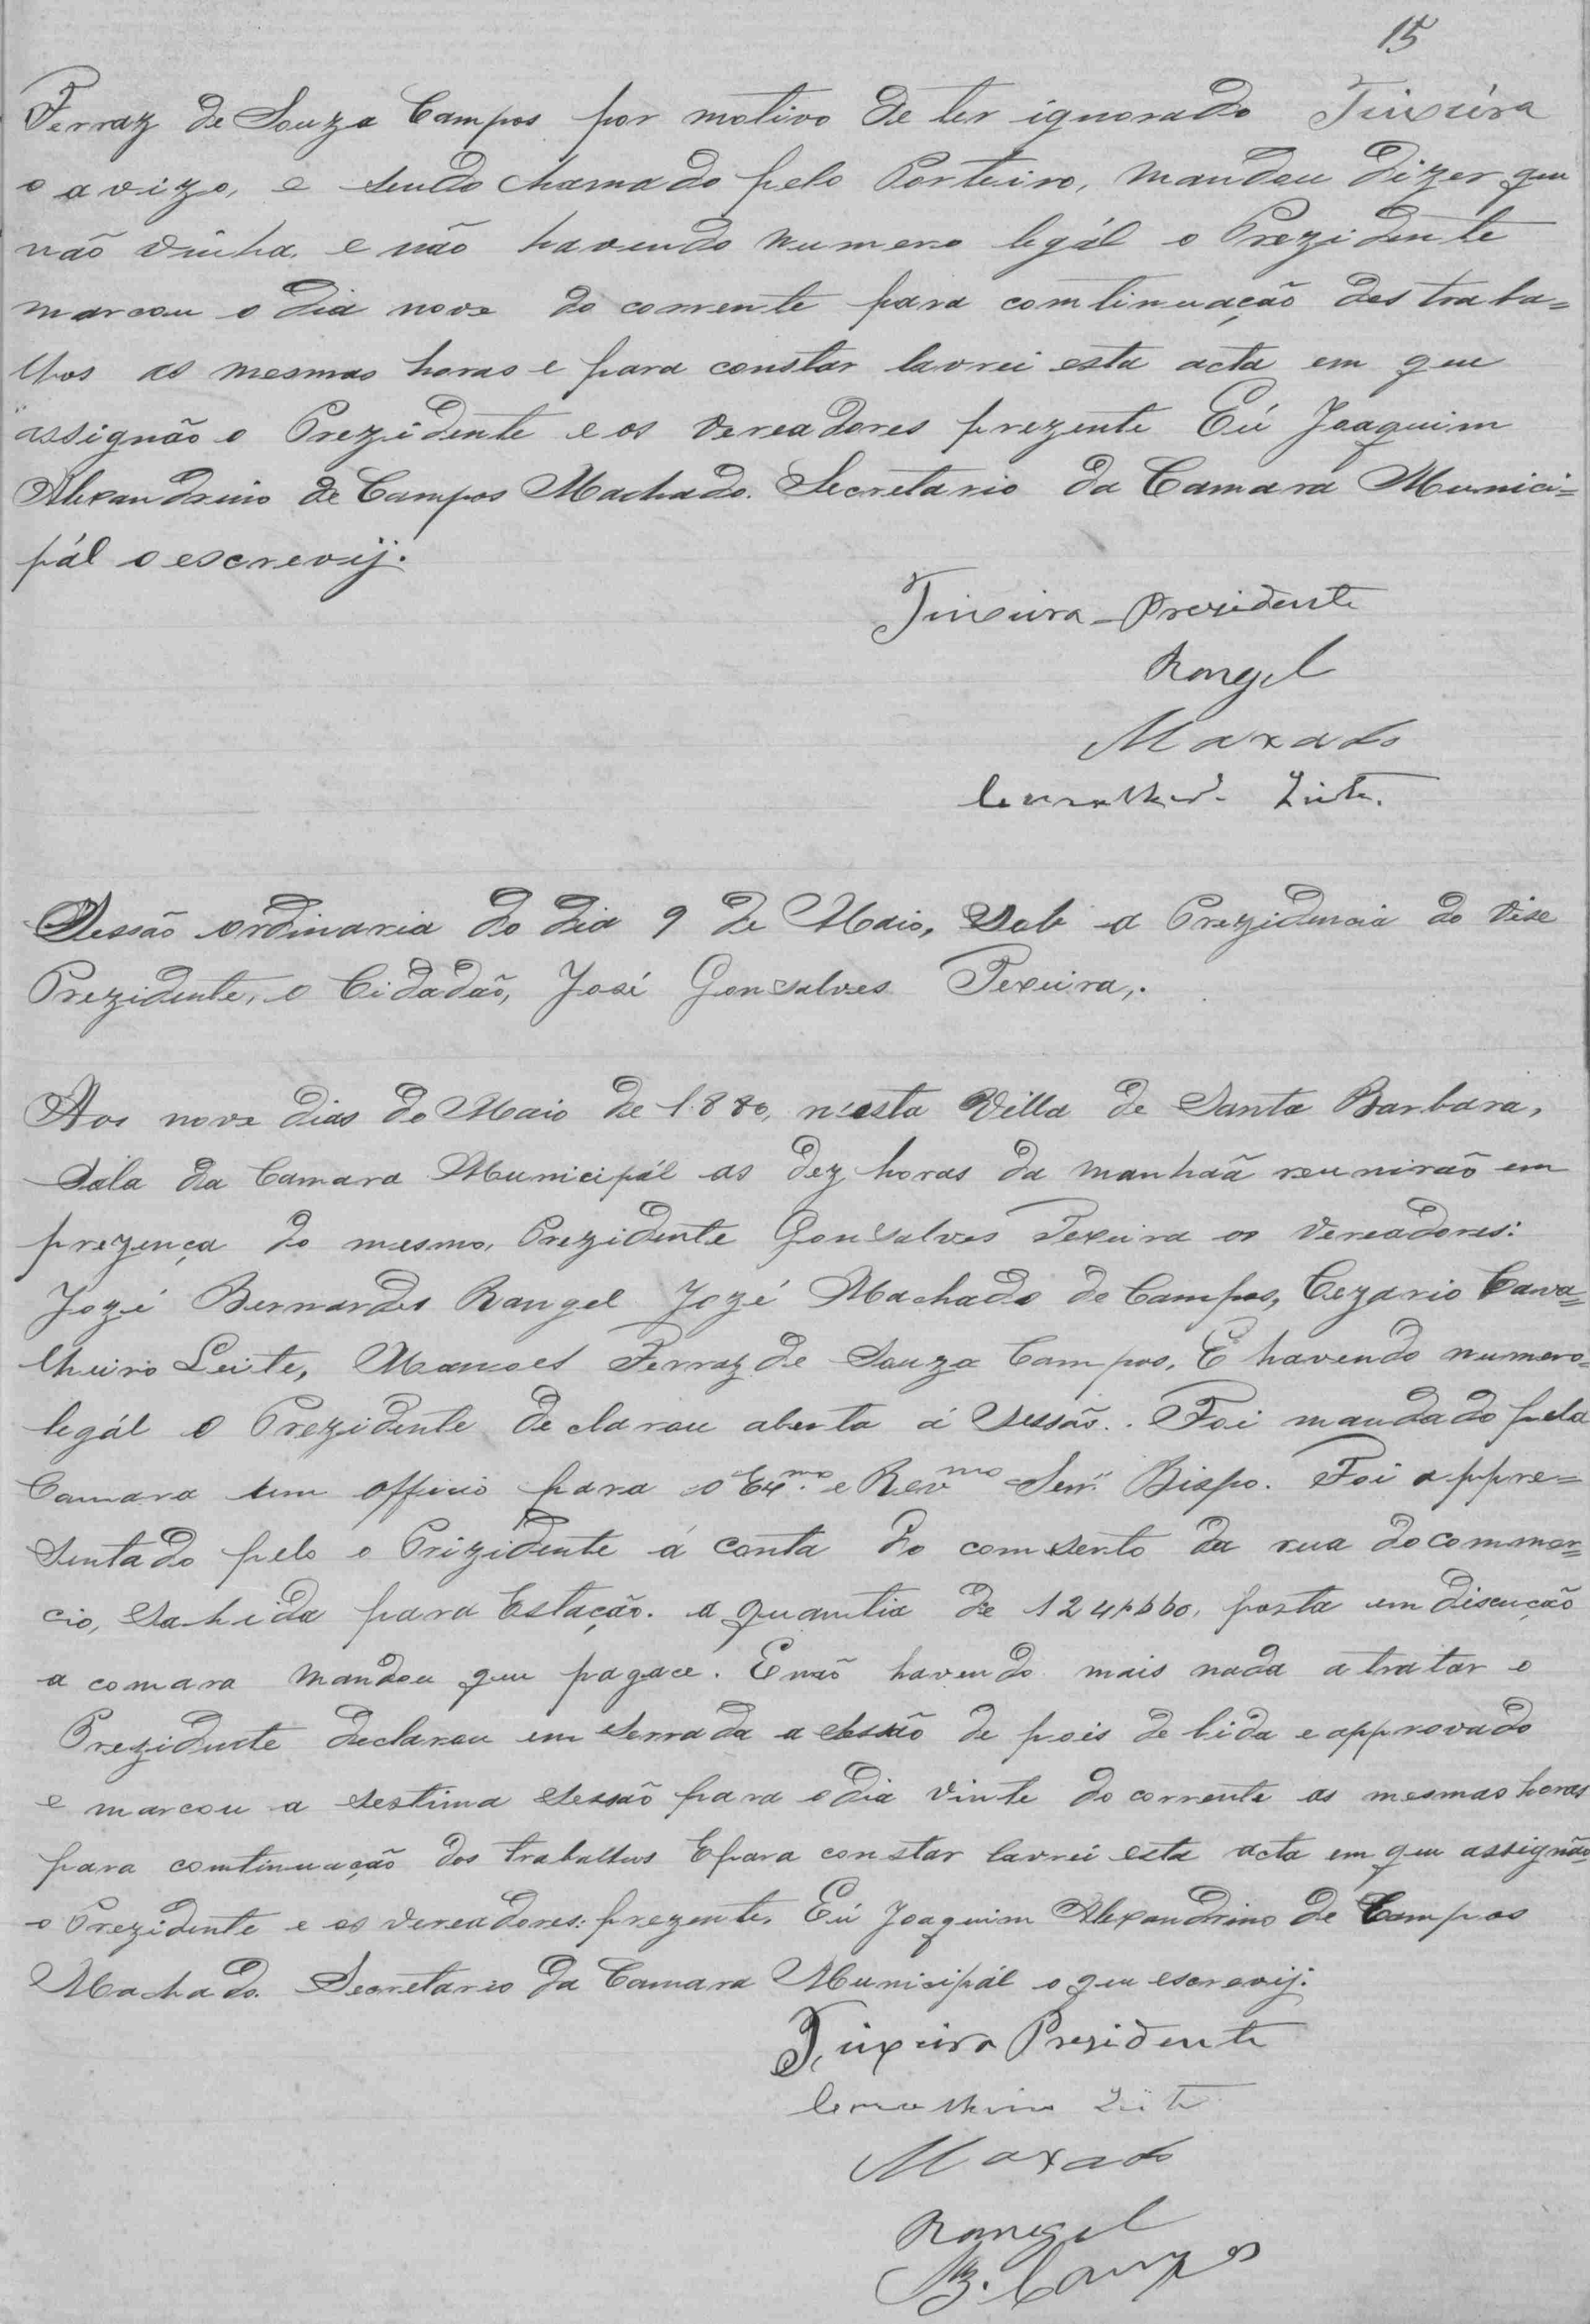 15
Ferraz de Souza Campos por motivo de ter ignorado Teixeira
o avizo, e sendo chamado pelo Porteiro, mandou dizer que
não vinha, e não havendo numero legál o Prezidente
marcou o dia nove do corrente para comtinuação dos traba=
lhos as mesmas horas e para constar lavrei esta acta em que
assignão o Prezidente e os vereadores prezente Eú Joaquim
Alexandrino de Campos Machado. Secretario da Camara Munici=
pál o escrevij.
Teixeira - Prezidente
Rangel
Maxado
Leite.
Sessão ordinaria do dia 9 de Maio, Sob a Prezidencia do Vise
Prezidente, o Cidadão, José Gonsalves Texeira,.
Aos nove dias do Maio de 1880, nesta Villa de Santa Barbara,
Sala da Camara Municipál as dez horas da manhaã reunirão em
prezença do mesmo, Prezidente Gonsalves Texeira os Vereadores:
Jozé Bernardes Rangel Jozé Machado de Campos, Cezario Cava=
lheiro Leite, Manoel Ferraz de Souza Campos, E havendo numero=
legál o Prezidente declarou aberta á Sessão. . Foi mandado pela
Camara um officio para o Exmo. e Revmo Senr. Bispo. Foi appre=
sentado pelo o Prizidente á conta do comserto da rua do commer=
cio, Sahida para Estação. a quantia de posta em discução
a comara mandou que pagace. E não havendo mais nada a tratar o
Prezidente declarou em serrada a sessão de pois de lida e approvado
e marcou a sestima sessão para o dia vinte do corrente as mesmas horas
para comtinuação dos trabalhos E para constar lavrei esta acta em que assignão
o Prezidente e os vereadores: prezente. Eú Joaquim Alexandrino de Campos
Machado. Secretario da Camara Municipál o que escrevij.
Teixeira Prezidente
Leite
Maxado
Rangel
Campos